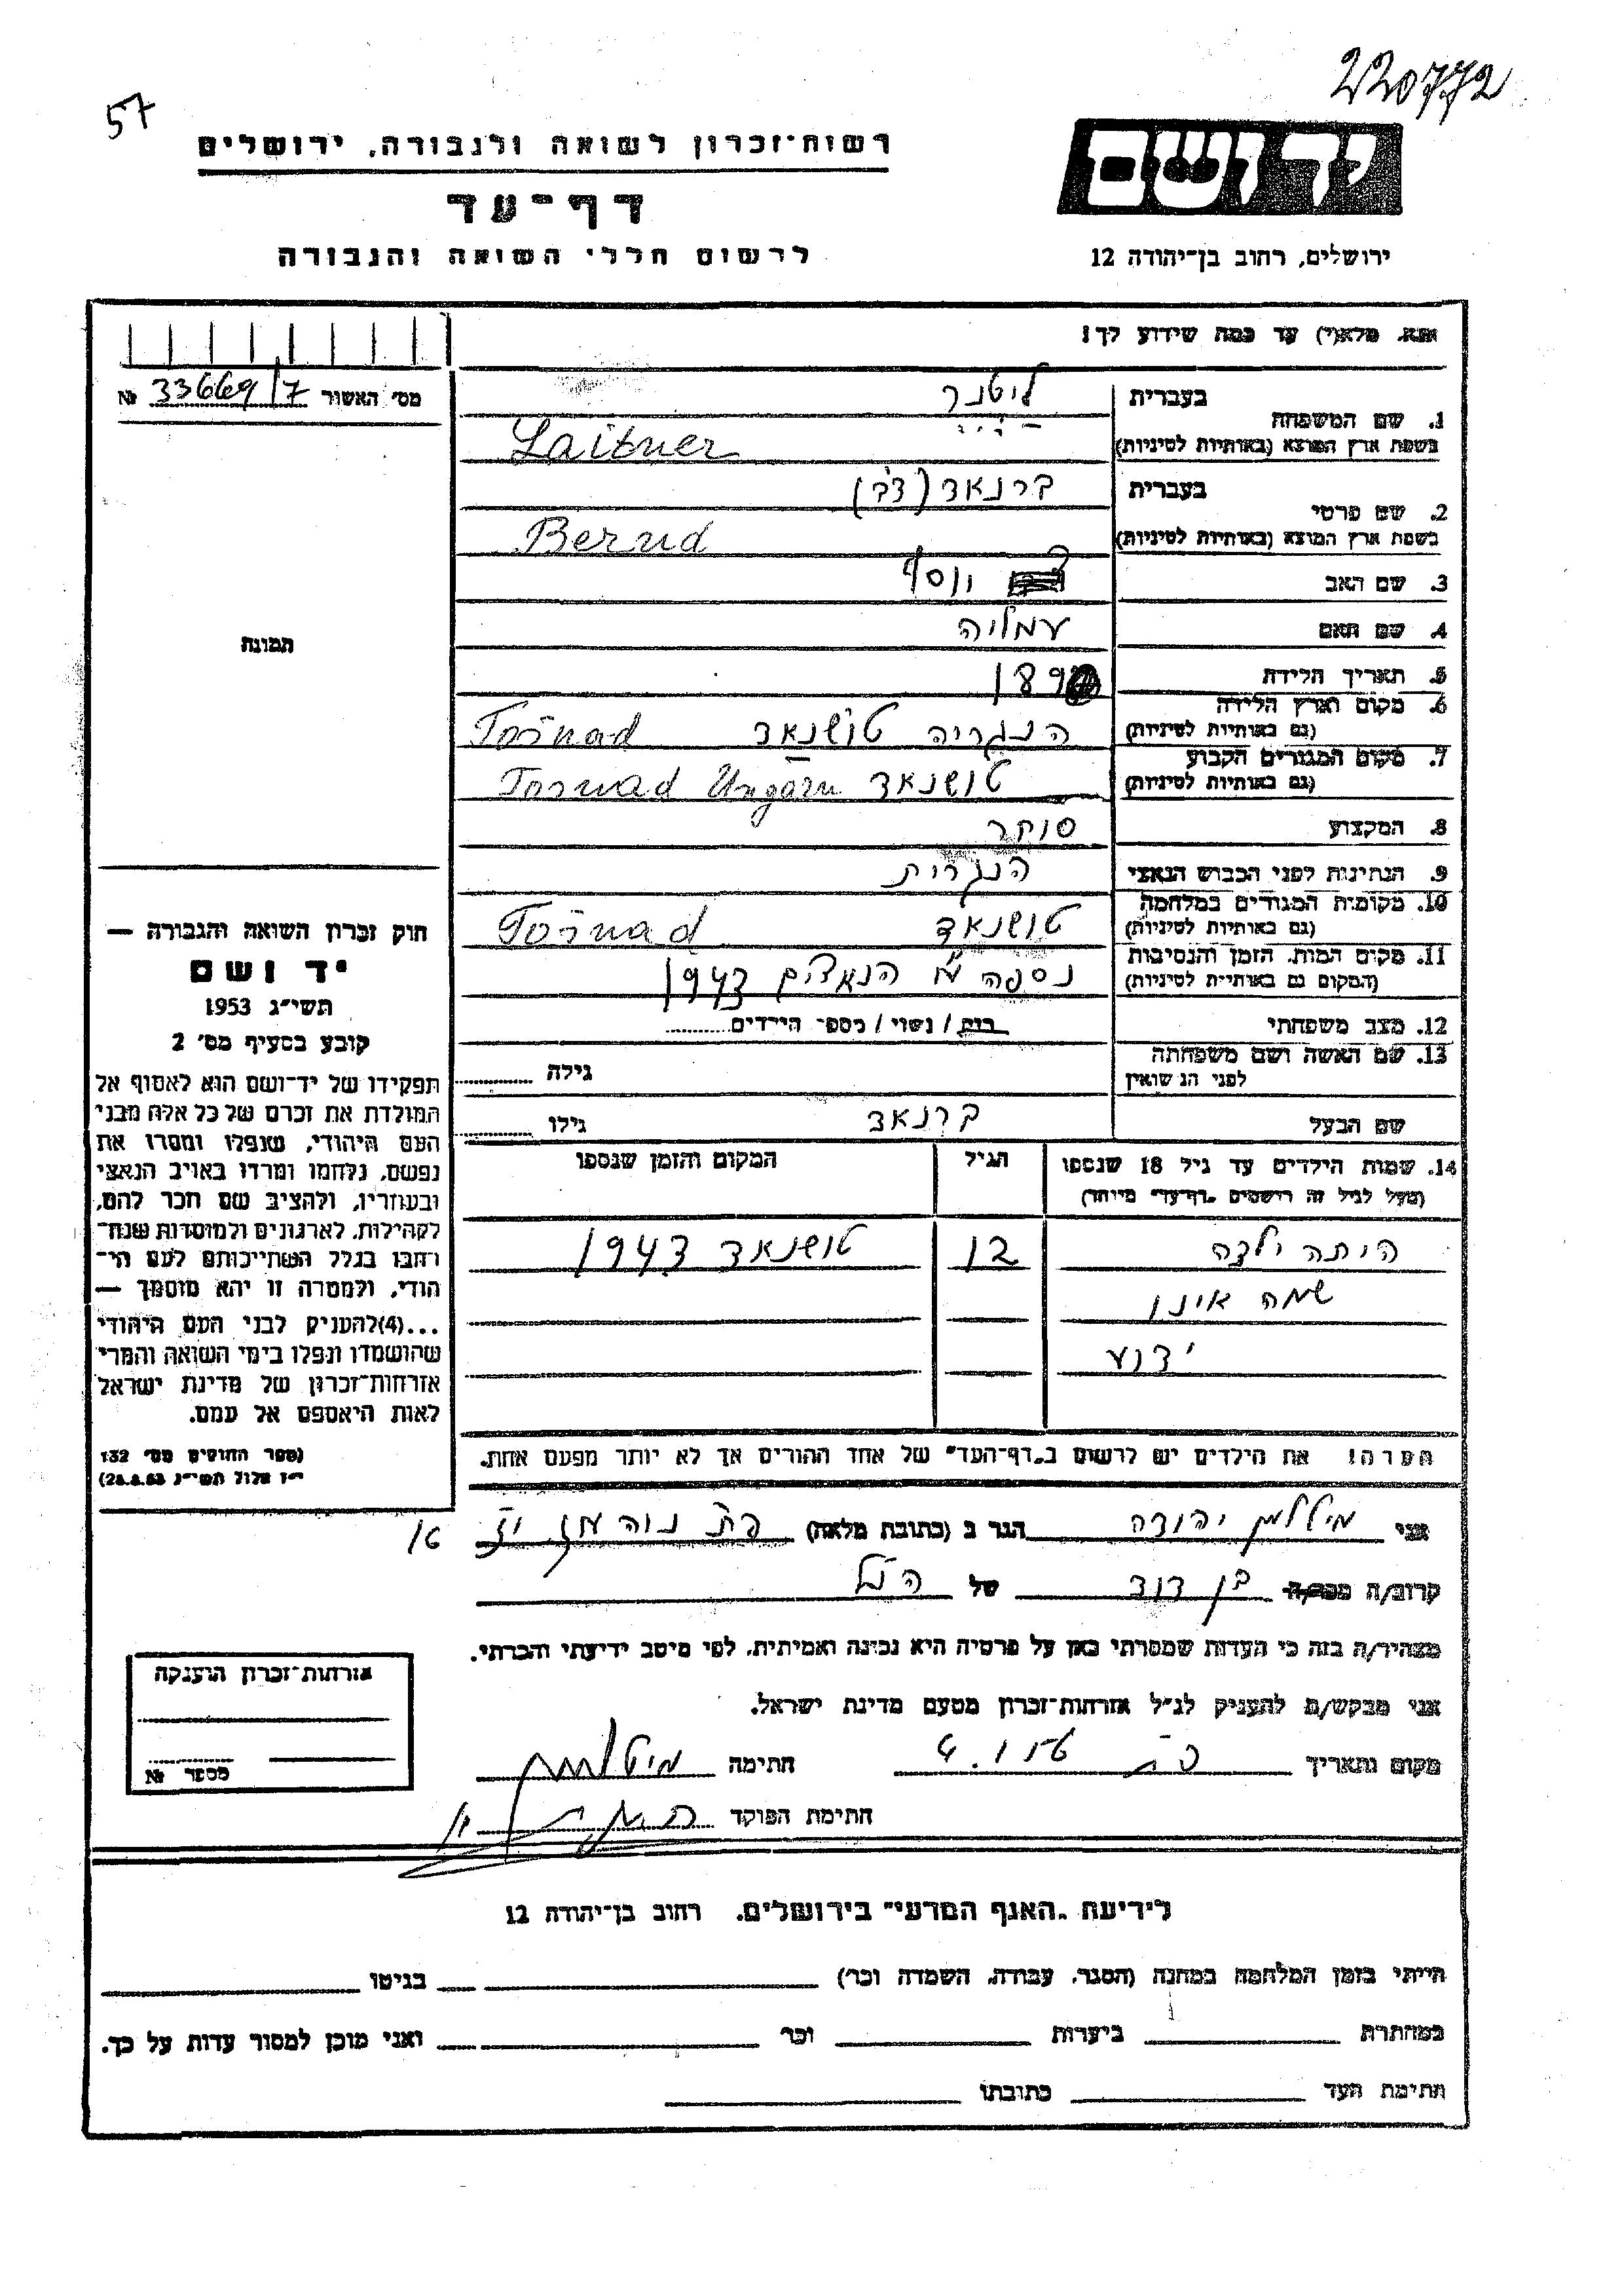 220772
57
יד ושם
רשות־זכרון לשואה ולגבורה, ירושלים
דף־עד
לרשום חללי השואה והגבורה
ירושלים, רחוב בן־יהודה 12
אנא, מלא(י) עד כמה שידוע לך!
מס׳ האשור № 33669/7
1. שם המשפחה
בעברית ליטנר
בשפת ארץ המוצא (באותיות לטיניות) Laitner
2. שם פרטי
בעברית ברנאד (דב)
בשפת ארץ המוצא (באותיות לטיניות) Bernd
3. שם האב יוסף
4. שם האם עמליה
5. תאריך הלידה 189
6. מקום וארץ הלידה (גם באותיות לטיניות) הנגריה טושנאד Tošnad
7. מקום המגורים הקבוע (גם באותיות לטיניות) טושנאד Tosnad Ungarn
8. המקצוע סוחר
9. הנתינות לפני הכבוש הנאצי הנגרית
10. מקומות המגורים במלחמה (גם באותיות לטיניות) טושנאד Tošnad
11. מקום המות, הזמן והנסיבות (המקום גם באותיות לטיניות) נספה ע״י הנאצים 1943
12. מצב משפחתי רווק / נשוי / מספר הילדים
13. שם האשה ושם משפחתה לפני הנשואין גילה
שם הבעל ברנאד גילו
14. שמות הילדים עד גיל 18 שנספו הגיל המקום והזמן שנספו
(מעל לגיל זה רושמים „דף־עד״ מיוחד)
היתה ילדה 12 טושנאד 1943
שמה אינו
ידוע
הערה! את הילדים יש לרשום ב„דף־העד״ של אחד ההורים אך לא יותר מפעם אחת.
תמונה
חוק זכרון השואה והגבורה —
יד ושם
תשי״ג 1953
קובע בסעיף מס׳ 2
תפקידו של יד־ושם הוא לאסוף אל
המולדת את זכרם של כל אלה מבני
העם היהודי, שנפלו ומסרו את
נפשם, נלחמו ומרדו באויב הנאצי
ובעוזריו, ולהציב שם וזכר להם,
לקהילות, לארגונים ולמוסדות שנח־
רבו בגלל השתייכותם לעם הי־
הודי, ולמטרה זו יהא מוסמך —
...(4) להעניק לבני העם היהודי
שהושמדו ונפלו בימי השואה והמרי
אזרחות־זכרון של מדינת ישראל
לאות היאספם אל עמם.
(ספר החוקים מס׳ 132
י״ז אלול תשי״ג 28.8.53)
אני מיטלמן יהודה הגר ב (כתובת מלאה)
קרוב/ה בן דוד של הנ״ל
מצהיר/ה בזה כי העדות שמסרתי כאן על פרטיה היא נכונה ואמיתית, לפי מיטב ידיעתי והכרתי.
אני מבקש/ת להעניק לנ״ל אזרחות־זכרון מטעם מדינת ישראל.
מקום ותאריך חתימה
חתימת הפוקד
אזרחות־זכרון הוענקה
מספר №
לידיעת „האגף המדעי״ בירושלים, רחוב בן־יהודה 12
הייתי בזמן המלחמה במחנה (הסגר, עבודה, השמדה וכר׳) בגיטו
במחתרת ביערות וכר׳ ואני מוכן למסור עדות על כך.
חתימת העד כתובתו